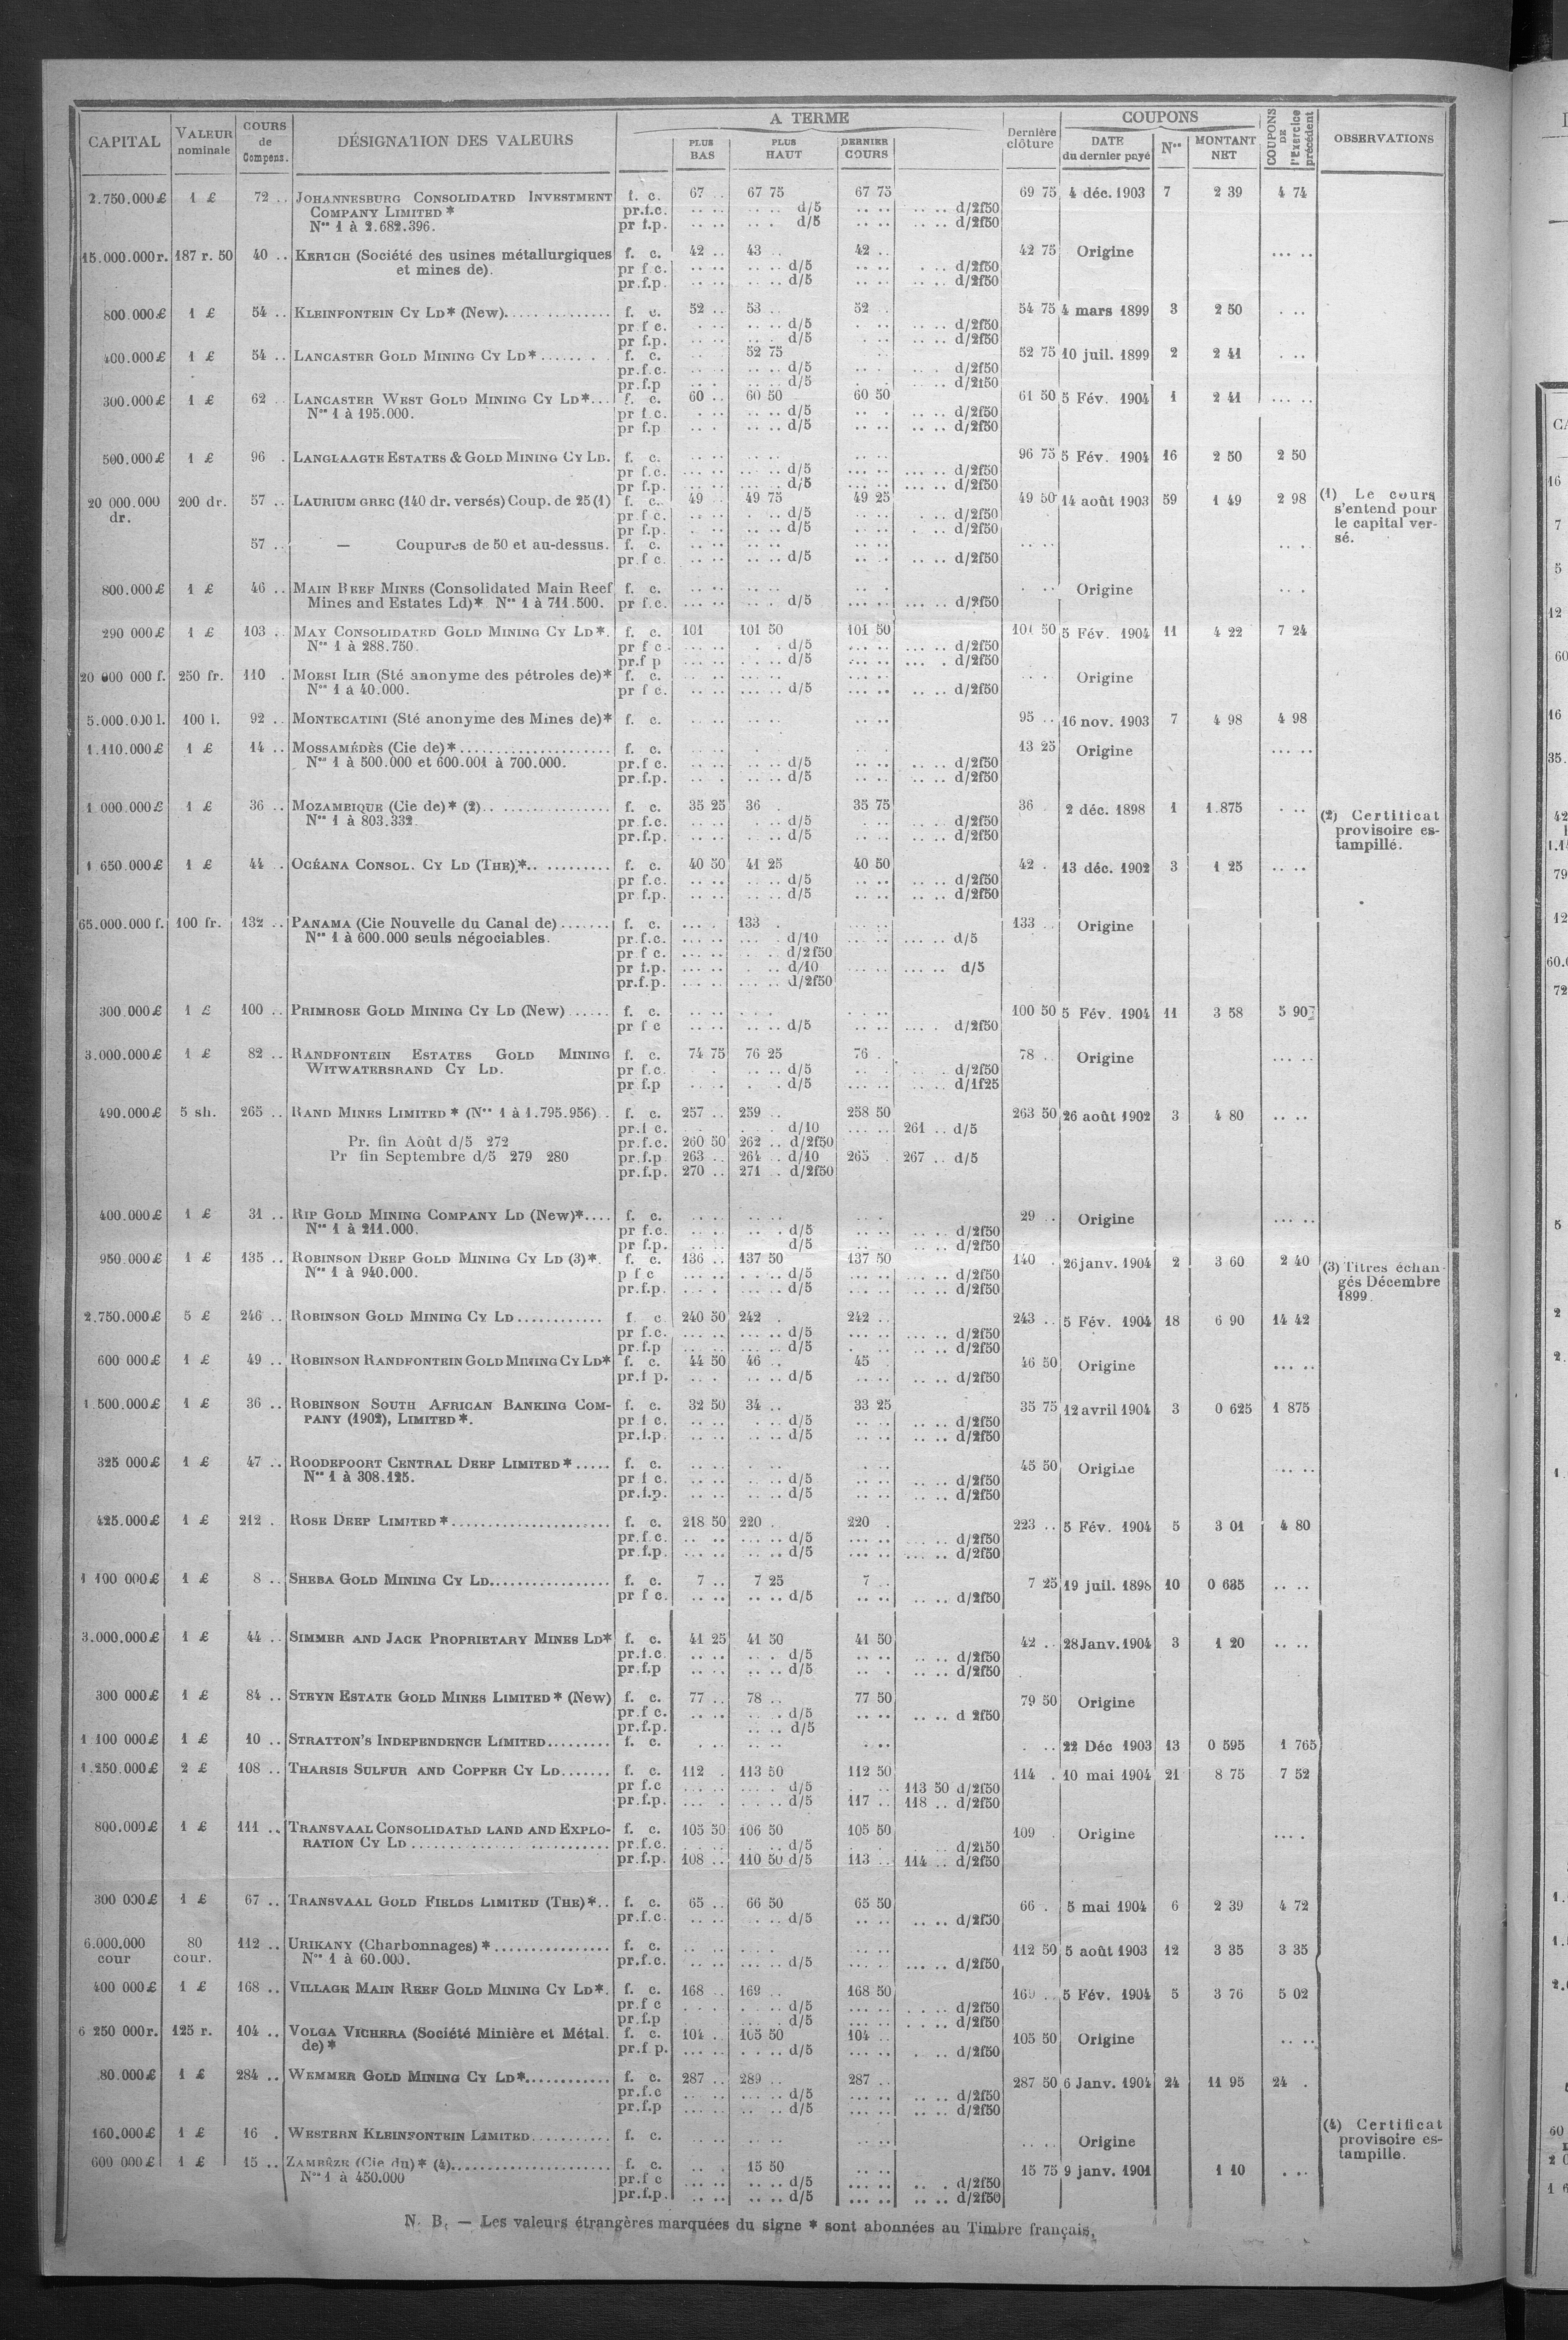 CAPITAL | VALEUR nominale | COURS de Compens. | DÉSIGNATION DES VALEURS | A TERME | PLUS BAS | PLUS HAUT | DERNIER COURS | Dernière clôture | COUPONS | DATE du dernier payé | Nos | MONTANT NET | COUPONS DE l'Exercice précédent | OBSERVATIONS
2.750.000£ 1 £ 72 .. JOHANNESBURG CONSOLIDATED INVESTMENT f. c. 67 .. 67 75 67 75 69 75 4 déc. 1903 7 2 39 4 74
COMPANY LIMITED * pr.f.c. d/5 d/2f50
Nos 1 à 2.682.396. pr f.p. d/5 d/2f50
15.000.000r. 187 r. 50 40 .. KERTCH (Société des usines métallurgiques f. c. 42 .. 43 .. 42 .. 42 75 Origine
et mines de). pr f c. d/5 d/2f50
pr.f.p. d/5 d/2f50
800.000£ 1 £ 54 .. KLEINFONTEIN CY LD* (New) f. c. 52 .. 53 .. 52 .. 54 75 4 mars 1899 3 2 50
pr f c. d/5 d/2f50
pr f.p. d/5 d/2f50
400.000£ 1 £ 54 .. LANCASTER GOLD MINING CY LD* f. c. 52 75 52 75 10 juil. 1899 2 2 41
pr.f.c. d/5 d/2f50
pr.f.p d/5 d/2f50
300.000£ 1 £ 62 .. LANCASTER WEST GOLD MINING CY LD*... f. c. 60 .. 60 50 60 50 61 50 5 Fév. 1904 1 2 41
Nos 1 à 195.000. pr f.c. d/5 d/2f50
pr f.p d/5 d/2f50
500.000£ 1 £ 96 . LANGLAAGTE ESTATES & GOLD MINING CY LD. f. c. 96 75 5 Fév. 1904 16 2 50 2 50
pr f.c. d/5 d/2f50
pr f.p. d/5 d/2f50
20 000.000 dr. 200 dr. 57 .. LAURIUM GREC (140 dr. versés) Coup. de 25 (1) f. c. 49 .. 49 75 49 25 49 50 14 août 1903 59 1 49 2 98 (1) Le cours s'entend pour le capital versé.
pr.f c. d/5 d/2f50
pr f.p. d/5 d/2f50
57 .. — Coupures de 50 et au-dessus. f. c.
pr.f c. d/5 d/2f50
800.000£ 1 £ 46 .. MAIN REEF MINES (Consolidated Main Reef f. c. Origine
Mines and Estates Ld)* Nos 1 à 711.500. pr f.c. d/5 d/2f50
290 000£ 1 £ 103 . MAY CONSOLIDATED GOLD MINING CY LD*. f. c. 101 101 50 101 50 101 50 5 Fév. 1904 11 4 22 7 24
Nos 1 à 288.750. pr f c d/5 d/2f50
pr.f p d/5 d/2f50
20 000 000 f. 250 fr. 110 . MORSI ILIR (Sté anonyme des pétroles de)* f. c. Origine
Nos 1 à 40.000. pr f c. d/5 d/2f50
5.000.000 l. 100 l. 92 .. MONTECATINI (Sté anonyme des Mines de)* f. c. 95 .. 16 nov. 1903 7 4 98 4 98
1.110.000£ 1 £ 14 .. MOSSAMÉDÈS (Cie de)* f. c. 13 25 Origine
Nos 1 à 500.000 et 600.001 à 700.000. pr.f c. d/5 d/2f50
pr.f.p. d/5 d/2f50
1.000.000£ 1 £ 36 .. MOZAMBIQUE (Cie de)* (2) f. c. 35 25 36 . 35 75 36 . 2 déc. 1898 1 1.875 (2) Certificat provisoire estampillé.
Nos 1 à 803.332. pr.f.c. d/5 d/2f50
pr.f.p. d/5 d/2f50
1 650.000£ 1 £ 44 . OCÉANA CONSOL. CY LD (THE)* f. c. 40 50 41 25 40 50 42 . 13 déc. 1902 3 1 25
pr f.c. d/5 d/2f50
pr f.p. d/5 d/2f50
65.000.000 f. 100 fr. 132 .. PANAMA (Cie Nouvelle du Canal de) f. c. 133 . 133 .. Origine
Nos 1 à 600.000 seuls négociables. pr.f.c. d/10 d/5
pr f c. d/2f50
pr f.p. d/10 d/5
pr.f.p. d/2f50
300.000£ 1 £ 100 .. PRIMROSE GOLD MINING CY LD (New) f. c. 100 50 5 Fév. 1904 11 3 58 5 907
pr f c d/5 d/2f50
3.000.000£ 1 £ 82 .. RANDFONTEIN ESTATES GOLD MINING f. c. 74 75 76 25 76 . 78 .. Origine
WITWATERSRAND CY LD. pr f.c. d/5 d/2f50
pr f.p d/5 d/1f25
490.000£ 5 sh. 265 .. RAND MINES LIMITED * (Nos 1 à 1.795.956) f. c. 257 .. 259 .. 258 50 263 50 26 août 1902 3 4 80
pr.f c. d/10 261 .. d/5
Pr. fin Août d/5 272 pr.f.c. 260 50 262 .. d/2f50
Pr fin Septembre d/5 279 280 pr.f.p 263 .. 264 .. d/10 265 . 267 .. d/5
pr.f.p. 270 .. 271 . d/2f50
400.000£ 1 £ 31 .. RIP GOLD MINING COMPANY LD (New)* f. c. 29 .. Origine
Nos 1 à 211.000. pr f.c. d/5 d/2f50
pr f.p. d/5 d/2f50
950 000£ 1 £ 135 .. ROBINSON DEEP GOLD MINING CY LD (3)*. f. c. 136 .. 137 50 137 50 140 . 26 janv. 1904 2 3 60 2 40 (3) Titres échangés Décembre 1899.
Nos 1 à 940.000. p f c d/5 d/2f50
pr.f.p. d/5 d/2f50
2.750.000£ 5 £ 246 .. ROBINSON GOLD MINING CY LD f. c 240 50 242 . 242 .. 243 .. 5 Fév. 1904 18 6 90 14 42
pr f.c. d/5 d/2f50
pr f.p d/5 d/2f50
600 000£ 1 £ 49 .. ROBINSON RANDFONTEIN GOLD MINING CY LD* f. c. 44 50 46 .. 45 . 46 50 Origine
pr.f p. d/5 d/2f50
1.500.000£ 1 £ 36 .. ROBINSON SOUTH AFRICAN BANKING COM- f. c. 32 50 34 .. 33 25 35 75 12 avril 1904 3 0 625 1 875
PANY (1902), LIMITED *. pr f c. d/5 d/2f50
pr.f.p. d/5 d/2f50
325 000£ 1 £ 47 .. ROODEPOORT CENTRAL DEEP LIMITED * f. c. 45 50 Origine
Nos 1 à 308.125. pr f c. d/5 d/2f50
pr.f.p. d/5 d/2f50
425.000£ 1 £ 212 . ROSE DEEP LIMITED * f. c. 218 50 220 . 220 . 223 .. 5 Fév. 1904 5 3 01 4 80
pr.f.c. d/5 d/2f50
pr.f.p. d/5 d/2f50
1 100 000£ 1 £ 8 .. SHEBA GOLD MINING CY LD f. c. 7 .. 7 25 7 .. 7 25 19 juil. 1898 10 0 635
pr f c. d/5 d/2f50
3.000.000£ 1 £ 44 .. SIMMER AND JACK PROPRIETARY MINES LD* f. c. 41 25 41 50 41 50 42 .. 28 Janv. 1904 3 1 20
pr.f.c. d/5 d/2f50
pr.f.p d/5 d/2f50
300 000£ 1 £ 84 .. STEYN ESTATE GOLD MINES LIMITED * (New) f. c. 77 .. 78 .. 77 50 79 50 Origine
pr.f c. d/5 d 2f50
pr.f.p. d/5
1 100 000£ 1 £ 10 .. STRATTON'S INDEPENDENCE LIMITED f. c. 22 Déc 1903 13 0 595 1 765
1.250.000£ 2 £ 108 .. THARSIS SULFUR AND COPPER CY LD f. c. 112 . 113 50 112 50 114 . 10 mai 1904 21 8 75 7 52
pr f.c d/5 113 50 d/2f50
pr.f.p. d/5 117 .. 118 .. d/2f50
800.000£ 1 £ 111 .. TRANSVAAL CONSOLIDATED LAND AND EXPLO- f. c. 105 50 106 50 105 50 109 . Origine
RATION CY LD pr.f.c. d/5 d/2f50
pr.f.p. 108 .. 110 50 d/5 113 .. 114 .. d/2f50
300 000£ 1 £ 67 .. TRANSVAAL GOLD FIELDS LIMITED (THE)*.. f. c. 65 .. 66 50 65 50 66 . 5 mai 1904 6 2 39 4 72
pr.f.c. d/5 d/2f50
6.000.000 cour 80 cour. 112 .. URIKANY (Charbonnages) * f. c. 112 50 5 août 1903 12 3 35 3 35
Nos 1 à 60.000. pr.f.c. d/5 d/2f50
400 000£ 1 £ 168 .. VILLAGE MAIN REEF GOLD MINING CY LD*. f. c. 168 .. 169 .. 168 50 169 .. 5 Fév. 1904 5 3 76 5 02
pr.f c d/5 d/2f50
pr.f.p d/5 d/2f50
6 250 000r. 125 r. 104 .. VOLGA VICHERA (Société Minière et Métal. f. c. 104 .. 105 50 104 .. 105 50 Origine
de)* pr.f p. d/5 d/2f50
80.000£ 1 £ 284 .. WEMMER GOLD MINING CY LD* f. c. 287 .. 289 .. 287 .. 287 50 6 Janv. 1904 24 11 95 24 .
pr.f.c d/5 d/2f50
pr.f.p d/5 d/2f50
160.000£ 1 £ 16 . WESTERN KLEINFONTEIN LIMITED f. c. Origine (4) Certificat provisoire estampille.
600 000£ 1 £ 15 .. ZAMBÈZE (Cie du)* (4) f. c. 15 50 15 75 9 janv. 1901 1 10
Nos 1 à 450.000 pr.f c d/5 d/2f50
pr.f.p. d/5 d/2f50
N. B. — Les valeurs étrangères marquées du signe * sont abonnées au Timbre français.